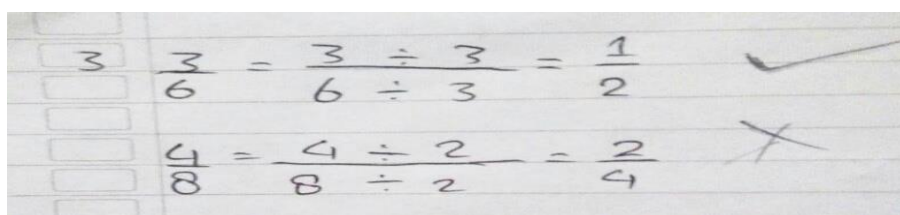 3 3/6 = 3 ÷ 3 / 6 ÷ 3 = 1/2 ✓
4/8 = 4 ÷ 2 / 8 ÷ 2 = 2/4 ✗